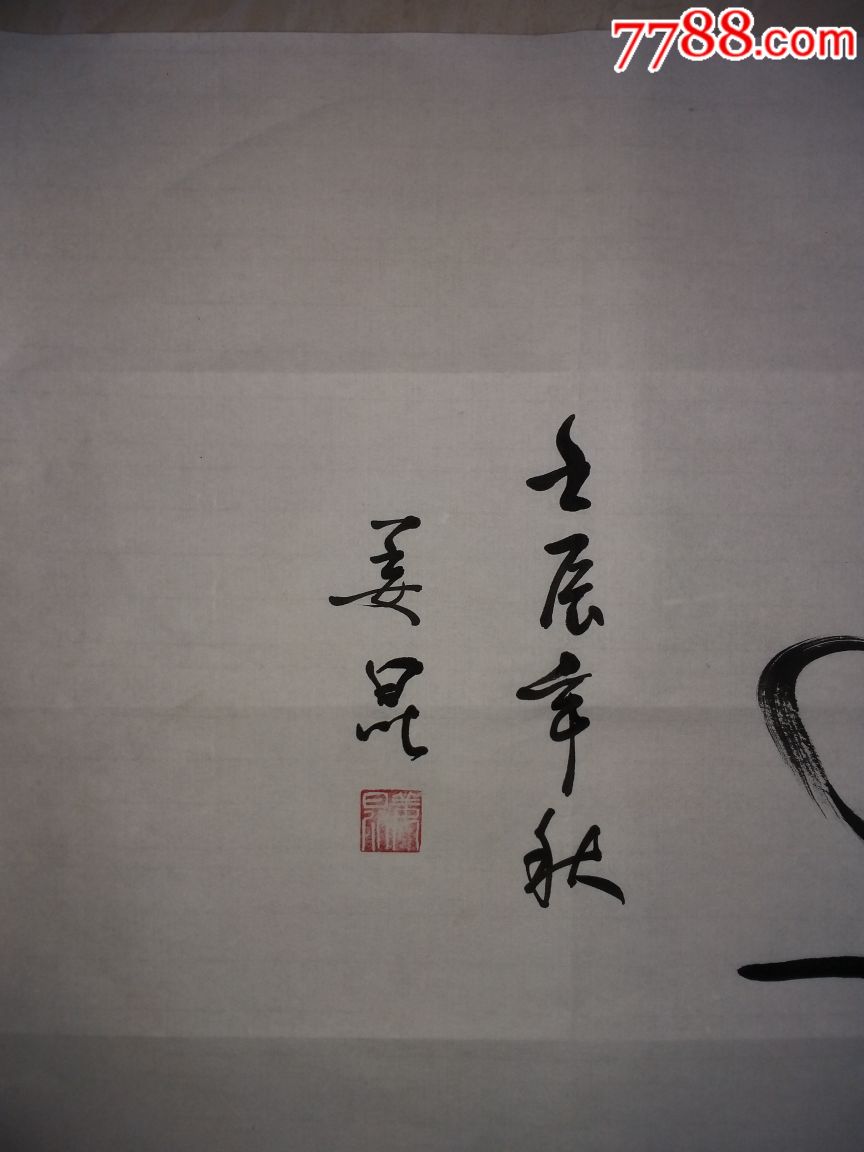 7788.com
壬辰年秋
姜昆
姜昆